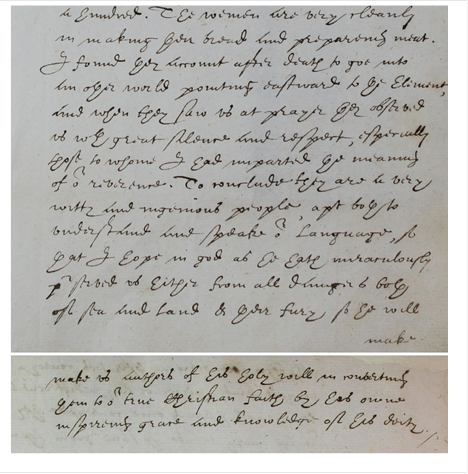 a hundred. The women are very cleanly
in making their bread and prepareing meat.
I found they account after death to goe into
an other world pointing eastward to the Element,
and when they saw vs at prayer they observed
vs wth great silence and respect, especially
those to whome I had imparted the meaning
of or reverence. To conclude they are a very
witty and ingenious people, apt both to
vnderstand and speake or language, so
that I hope in god as he hath miraculously
pserved vs hither from all dangers both
of sea and land & their fury, so he will
make
make vs authors of his holy will in converting
them to or true Christian faith by his owne
inspireing grace and knowledge of his deity.